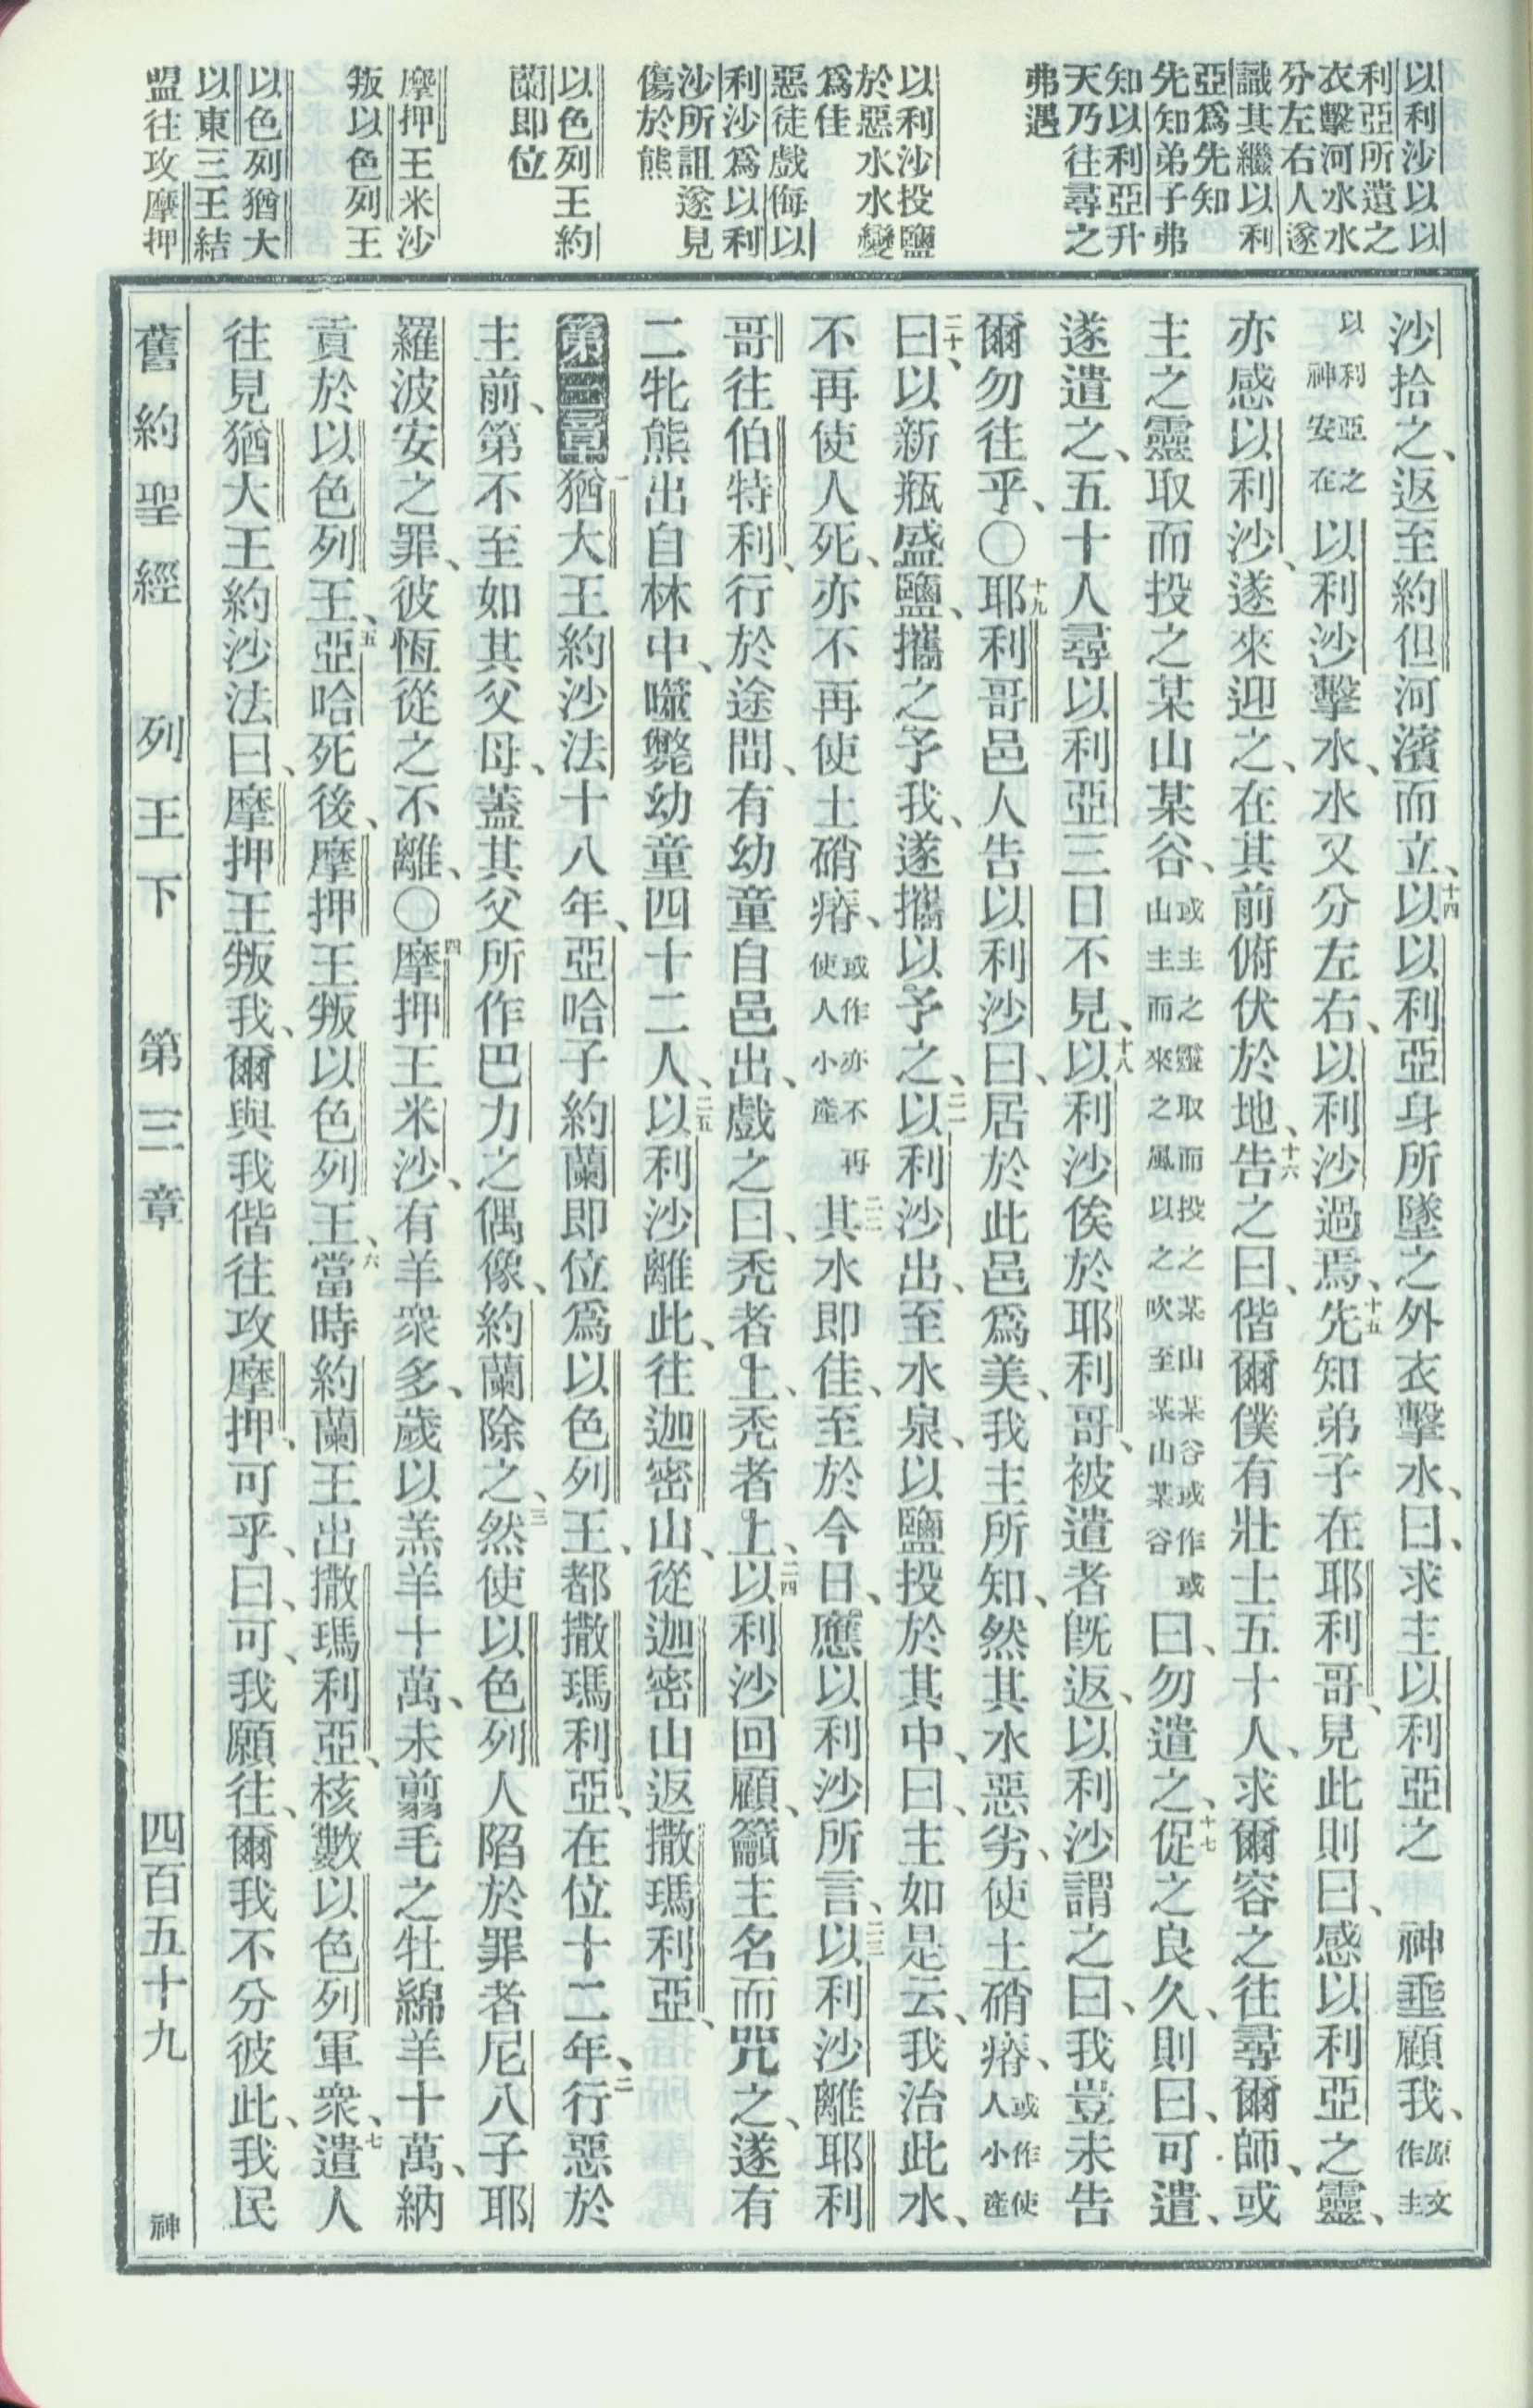 以利沙以以
利亞所遺之
衣擊河水水
分左右人遂
識其繼以利
亞爲先知
先知弟子弗
知以利亞升
天乃往尋之
弗遇
以利沙投鹽
於惡水水變
爲佳
惡徒戲侮以
利沙爲以利
沙所詛遂見
傷於熊
以色列王約
蘭即位
摩押王米沙
叛以色列王
以色列猶大
以東三王結
盟往攻摩押
沙拾之、返至約但河濱而立、十四以以利亞身所墜之外衣擊水、曰、求主以利亞之 神垂顧我、原文作主
以利亞之神安在以利沙擊水、水又分左右、以利沙過焉、十五先知弟子在耶利哥、見此則曰、感以利亞之靈、
亦感以利沙、遂來迎之、在其前俯伏於地、十六告之曰、偕爾僕有壯士五十人、求爾容之往尋爾師、或
主之靈取而投之某山某谷、或主之靈取而投之某山某谷或作或山主而來之風以之吹至某山某谷曰、勿遣之、十七促之良久、則曰、可遣、
遂遣之、五十人尋以利亞三日不見、十八以利沙俟於耶利哥、被遣者旣返、以利沙謂之曰、我豈未告
爾勿往乎、〇十九耶利哥邑人告以利沙曰、居於此邑爲美、我主所知、然其水惡劣、使土磽瘠、或作使人小產
二十曰、以新瓶盛鹽、攜之予我、遂攜以予之、二一以利沙出、至水泉、以鹽投於其中、曰、主如是云、我治此水、
不再使人死、亦不再使土磽瘠、或作亦不再使人小產二二其水即佳、至於今日、應以利沙所言、二三以利沙離耶利
哥往伯特利、行於途間、有幼童自邑出、戲之曰、禿者上、禿者上、二四以利沙回顧、籲主名而咒之、遂有
二牝熊出自林中、噬斃幼童四十二人、二五以利沙離此、往迦密山、從迦密山返撒瑪利亞、
第三章一猶大王約沙法十八年、亞哈子約蘭即位爲以色列王、都撒瑪利亞、在位十二年、二行惡於
主前、第不至如其父母、蓋其父所作巴力之偶像、約蘭除之、三然使以色列人陷於罪者尼八子耶
羅波安之罪、彼恆從之不離、〇四摩押王米沙、有羊衆多、歲以羔羊十萬、未翦毛之牡綿羊十萬、納
貢於以色列王、五亞哈死後、摩押王叛以色列王、六當時約蘭王出撒瑪利亞、核數以色列軍衆、七遣人
往見猶大王約沙法曰、摩押王叛我、爾與我偕往攻摩押、可乎、曰、可、我願往、爾我不分彼此、我民
舊約聖經 列王下 第三章 四百五十九 神